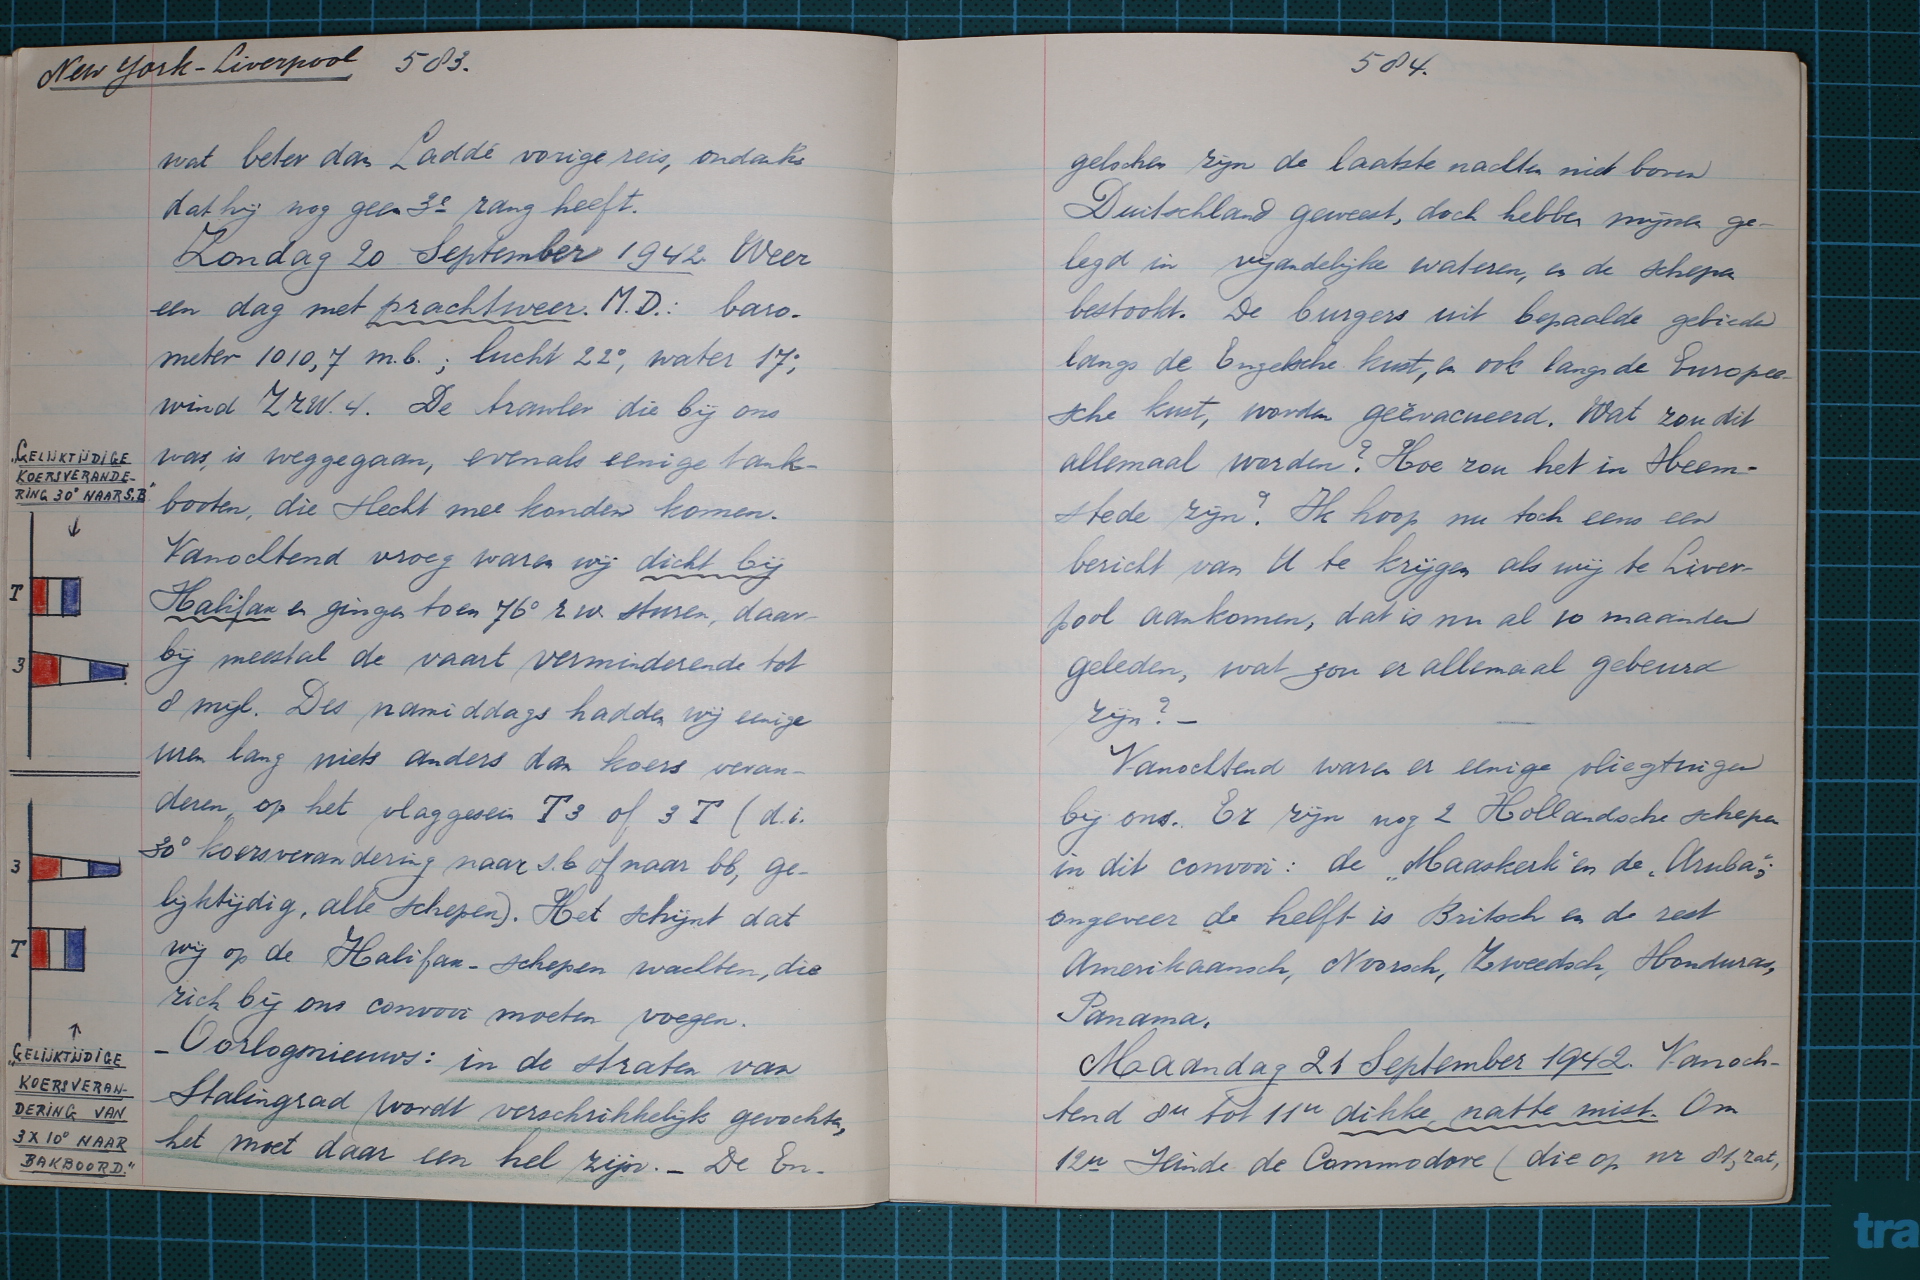 New York - Liverpool 583.
wat beter dan Laddé vorige reis, ondanks
dat hij nog geen 3e rang heeft.
Zondag 20 September 1942. Weer
een dag met prachtweer. M.D.: baro-
meter 1010,7 m.b.; lucht 22°, water 17°,
wind ZZW. 4. De trawler die bij ons
was, is weggegaan, evenals eenige tank-
booten, die slecht mee konden komen.
Vanochtend vroeg waren wij dicht bij
Halifax en gingen toen 76° r.w. sturen, daar-
bij meestal de vaart verminderende tot
8 mijl. Des namiddags hadden wij eenige
uren lang niets anders dan koers veran-
deren, op het vlaggesein T3 of 3T (d.i.
30° koersverandering naar s.b of naar bb, ge-
lijktijdig, alle schepen). Het schijnt dat
wij op de Halifax-schepen wachten, die
zich bij ons convooi moeten voegen.
- Oorlogsnieuws: in de straten van
Stalingrad wordt verschrikkelijk gevochten,
het moet daar een hel zijn. - De En-
"GELIJKTIJDIGE
KOERSVERANDE-
RING 30° NAAR S.B"
↓
T
3
3
T
↑
"GELIJKTIJDIGE
KOERSVERAN-
DERING VAN
3 X 10° NAAR
BAKBOORD."
584.
gelschen zijn de laatste nachten niet boven
Duitschland geweest, doch hebben mijnen ge-
legd in vijandelijke wateren, en de schepen
bestookt. De burgers uit bepaalde gebieden
langs de Engelsche kust, en ook langs de Europee-
sche kust, worden geëvacueerd. Wat zou dit
allemaal worden? Hoe zou het in Heem-
stede zijn? Ik hoop nu toch eens een
bericht van U te krijgen als wij te Liver-
pool aankomen, dat is nu al 10 maanden
geleden, wat zou er allemaal gebeurd
zijn? -
Vanochtend waren er eenige vliegtuigen
bij ons. Er zijn nog 2 Hollandsche schepen
in dit convooi: de "Maaskerk" en de "Aruba";
ongeveer de helft is Britsch en de rest
Amerikaansch, Noorsch, Zweedsch, Honduras,
Panama.
Maandag 21 September 1942. Vanoch-
tend 8u tot 11u dikke, natte mist. Om
12u seinde de Commodore (die op nr 81, zat,
tra